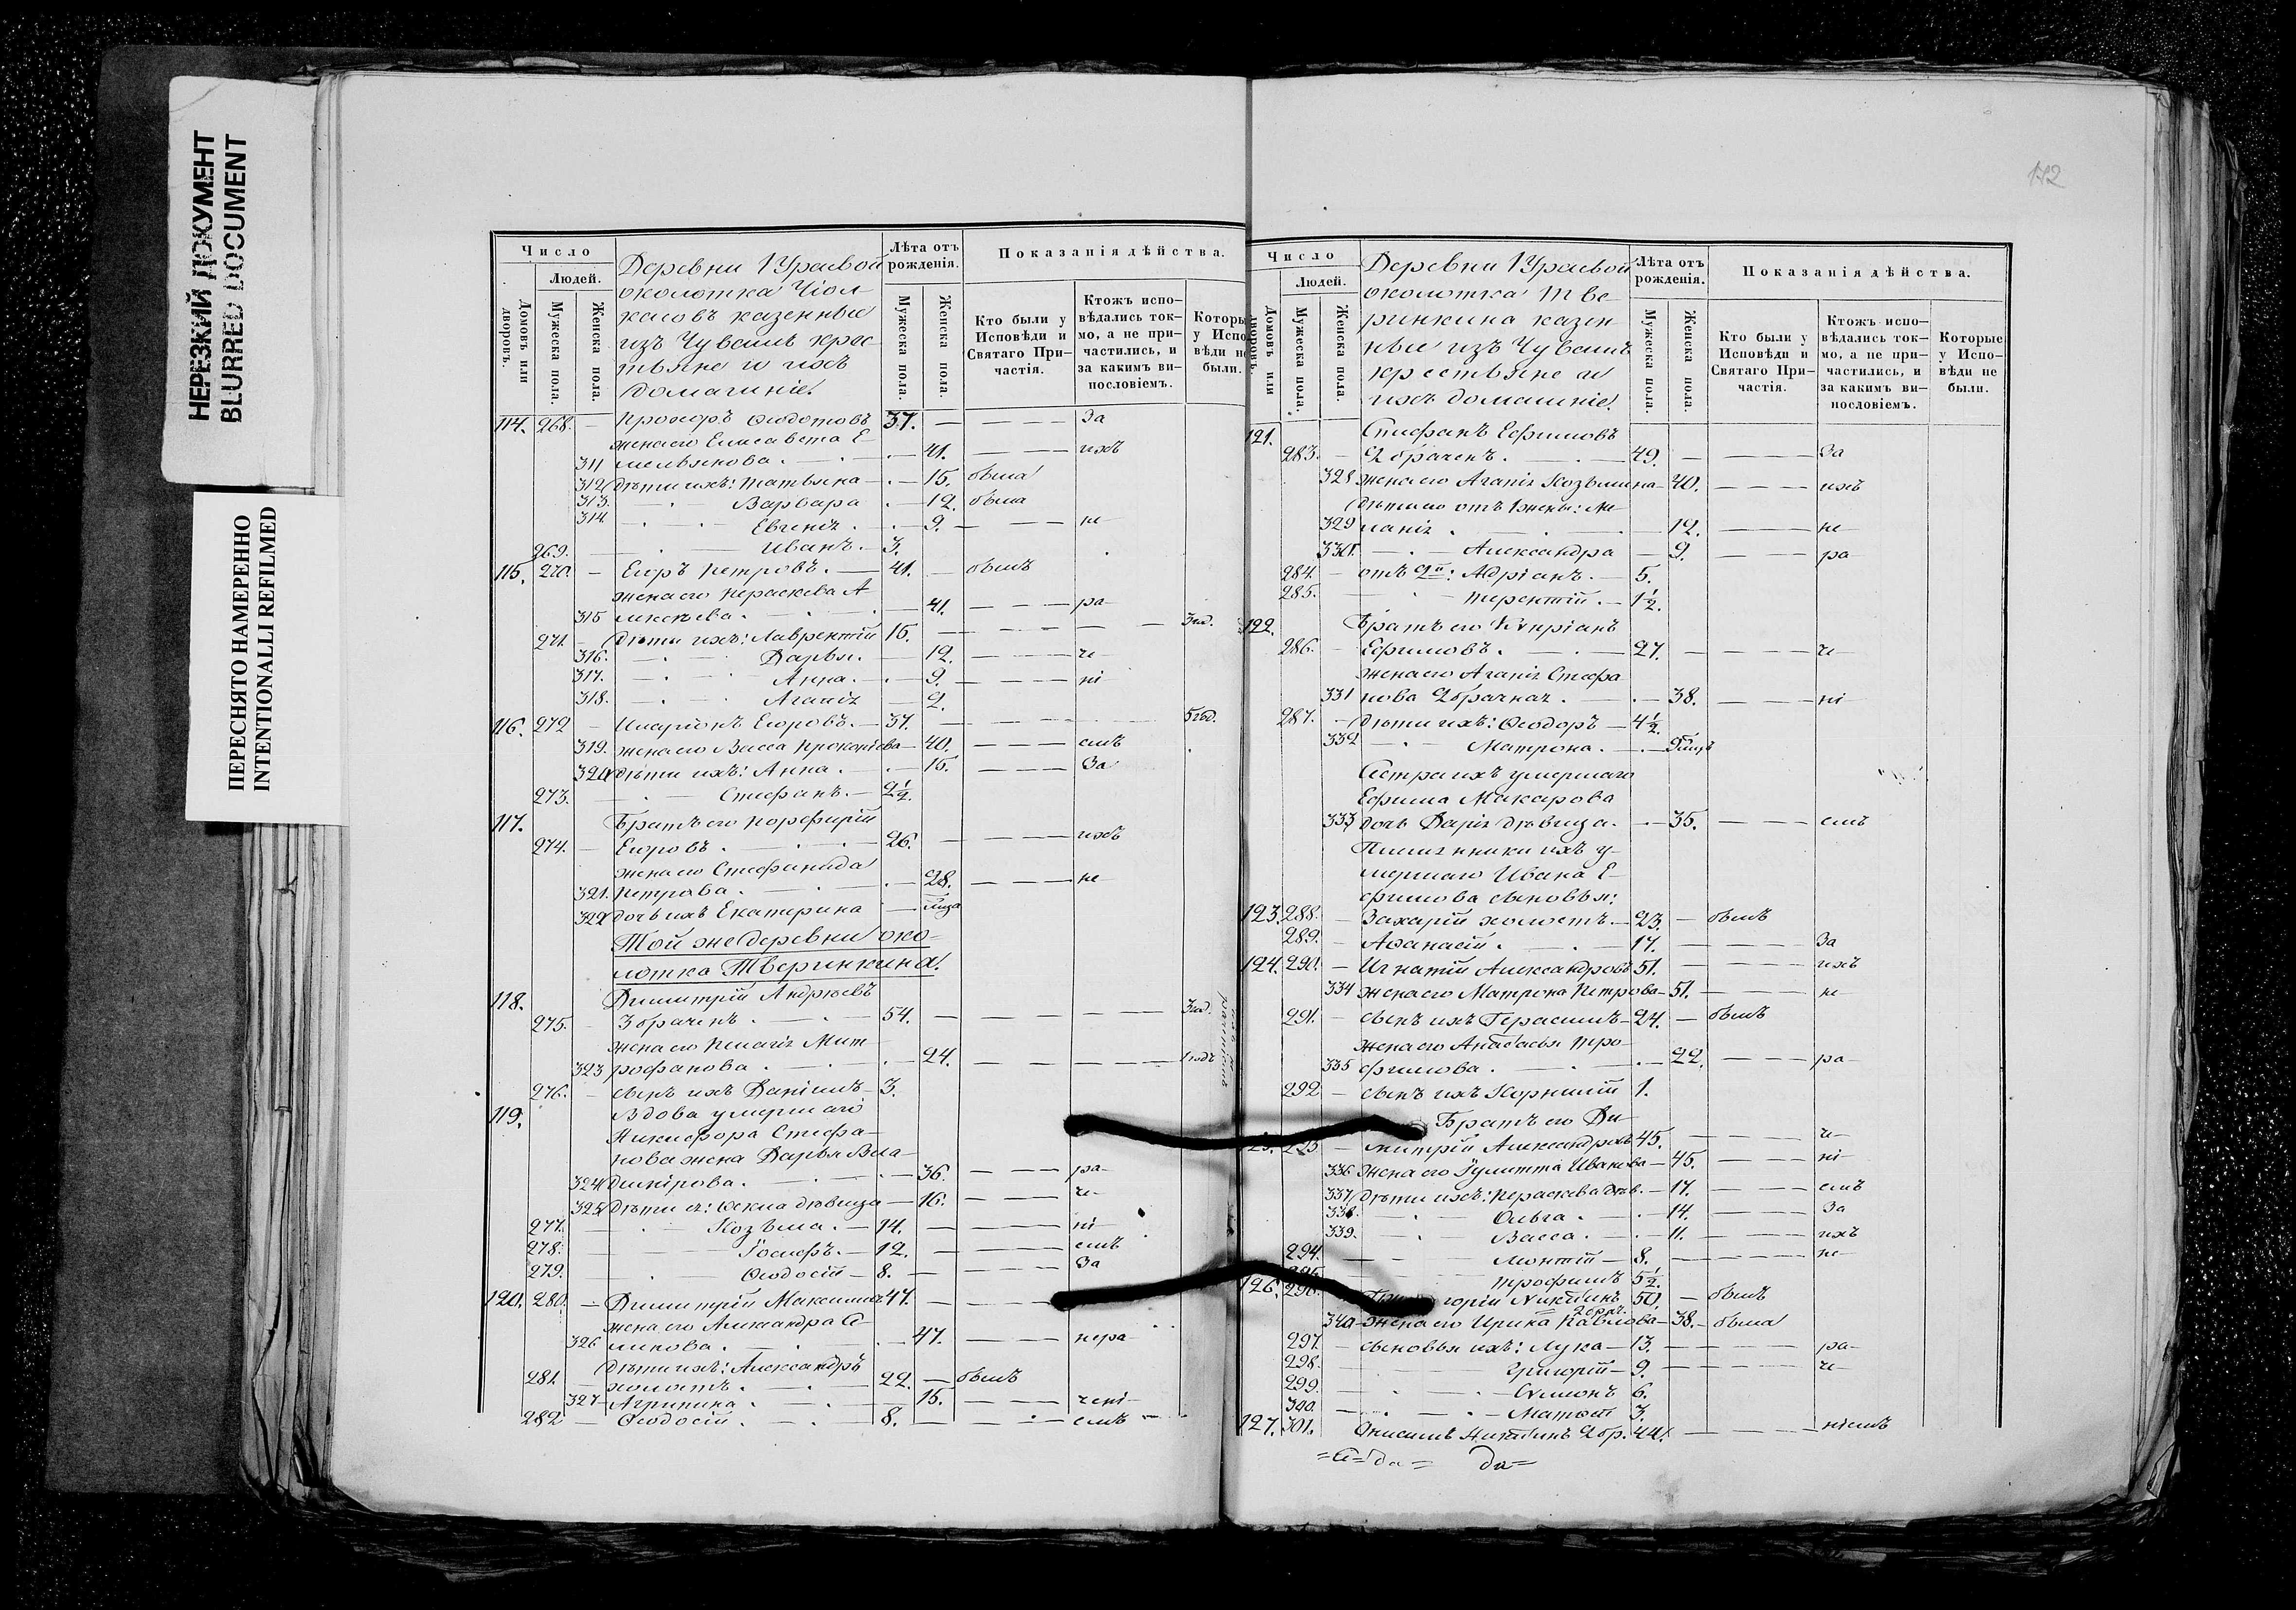 НЕРЕЗКИЙ ДОКУМЕНТ
BLURRED DOCUMENT
ПЕРЕСНЯТО НАМЕРЕННО
INTENTIONALLI REFILMED
Число
Людей.
Домовъ или дворовъ.
Мужеска пола.
Женска пола.
Деревни
околотка
казенные
изъ Чувашъ крес
тьяне и ихъ
домашніе.
Лѣта отъ рожденія.
Мужеска пола.
Женска пола.
Показанія дѣйства.
Кто были у Исповѣди и Святаго При-частія.
Ктожъ испо-вѣдались ток-мо, а не при-частились, и за какимъ ви-пословіемъ.
Которы у Испо вѣди не были.
114. 268. Прохоръ Ѳеодотовъ 37. За
жена его Елисавета Е
311 мельянова. 41. ихъ
312 дѣти ихъ: Татьяна 15. была
313. Варвара 12. была
314 Евгенія. 9. не
269. Иванъ. 3.
115. 270. Егоръ Петровъ. 41. былъ
жена его Параскева А
315 лексѣева. 41. ра
271. дѣти ихъ: Лаврентій 15. 3 год.
316. Дарья. 12. че
317. Анна. 9. ні
318. Агапія 2.
116. 272 Иларіонъ Егоровъ. 37. 5 год.
319. жена его Васса Прокопіева 40. емъ
320 дѣти ихъ: Анна. 15. За
273. Стефанъ. 2½.
117. Братъ его Порфирій
274. Егоровъ. 26. ихъ
жена его Стефанида
321. Петрова. 28. не
322 дочь ихъ Екатерина
Той же деревни око
лотка Тверинкина.
118. Димитрій Андреевъ
275. 3 браченъ. 54. 3 год.
жена его Пелагія Мит
323 рофанова. 24. 1 годъ
276. сынъ ихъ Даніилъ 3.
119. Вдова умершаго
Никифора Стефа-
нова жена Дарья Вла-
324 димірова. 36. ра
325 дѣти ея: Ѳекла дѣвица 16. че
277. Козьма. 14. ні
278. Іосифъ. 12. емъ
279. Ѳеодосій 8. За
120. 280. Димитрій Максимовъ 47.
жена его Александра
326 47. нера
дѣти ихъ: Александръ
281. холостъ. 22. былъ
327 Агрипина 15. чені
282 Ѳеодосій. 8. емъ
172
Число
Людей.
Домовъ или дворовъ.
Мужеска пола.
Женска пола.
Деревни
околотка Тве
ринкина казен
ные изъ Чувашъ
крестьяне и
ихъ домашніе.
Лѣта отъ рожденія.
Мужеска пола.
Женска пола.
Показанія дѣйства.
Кто были у Исповѣди и Святаго При-частія.
Ктожъ испо-вѣдались ток-мо, а не при-частились, и за какимъ ви-пословіемъ.
Которые у Испо-вѣди не были.
121. Стефанъ Ефимовъ
283. 2 браченъ. 49. За
328 жена его Агапія Козьмина 40. ихъ
дѣти его отъ 1 жены: Ме
329 ланія. 12. не
330. Александра 9. ра
284. отъ 2й: Адріанъ. 5.
285. Терентій. 1½.
122. Братъ его Кипріанъ
286. Ефимовъ. 27. че
жена его Агапія Стефа
331 нова 2 брачная. 38. ні
287. дѣти ихъ: Ѳеодоръ 4½.
332 Матрона.
Сестра ихъ умершаго
Ефима Макарова
333 дочь Дарія дѣвица. 35. емъ
Племянники ихъ у-
мершаго Ивана Е-
фимова сыновья:
123. 288. Захарій холостъ. 23. былъ
289. Аѳанасій. 17. За
124. 290. Игнатій Александровъ 51. ихъ
334 жена его Матрона Петрова 51. не
291. сынъ ихъ Герасимъ 24. былъ
жена его Анастасья Тро
335 фимова. 22. ра
292 сынъ ихъ Корнилій 1.
Братъ его Ди
митрій Александровъ 45. че
336 жена его Іулитта Иванова 45. ні
337 дѣти ихъ: Параскева дѣв. 17. емъ
338. Ольга. 14. За
339. Васса. 11. ихъ
294. Леонтій 8. не
295. Трофимъ 5½.
126. 296. горій Никитинъ 50. былъ
2 брач.
340 жена его Ирина Павлова 38. была
297. сыновья ихъ: Лука 13. ра
298. Григорій 9. че
299. Симонъ 6.
300. Матвей 3.
127. 301. Онисимъ Никитинъ 2 бр. 44. ніемъ